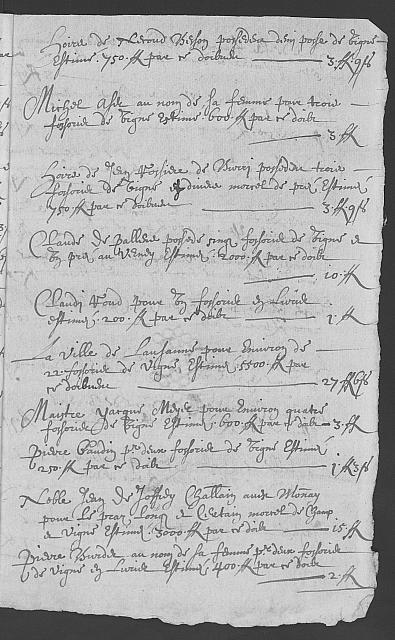 Hoirs de Neroud Besson possedent demi pose de vigne
Estimé 750 ff par ce doibvent 3 ff 9 s
Michel Asse au nom de sa femme pour trois
fossoriés de vigne Estimé 600 ff par ce doibt
3 ff
Hoirs de Jean de Bueri possedent trois
fossoriés de vigne & divers morcel de prez Estimé
750 ff par ce doibvent 3 ff 9 s
Claude de Palliere possede cinq fossoriés de vigne &
un prez au Verney Estimé 2000 ff par ce doibt
10 ff
Claudi pour un fossorié en Lurié
estimé 200 ff par ce doibt 1 ff
La Ville de Lausanne pour Environ de
22 fossoriés de vigne Estimé 5500 ff par
ce doibvent 27 ff 6 s
Maistre Jacques pour Environ quatre
fossoriés de vigne Estimé 600 ff par ce doibt 3 ff
Pierre Gaudin pr deux fossoriés de vigne Estimé
250 ff par ce doibt 1 ff 3 s
Noble Jean de Joffrey Challain avec Monay
pour le praz Long & certain morcel de champ
& vigne Estimé 3000 ff par ce doibt 15 ff
Pierre au nom de sa femme pr deux fossoriés
de vigne en Lurié Estimé 400 ff par ce doibt
2 ff